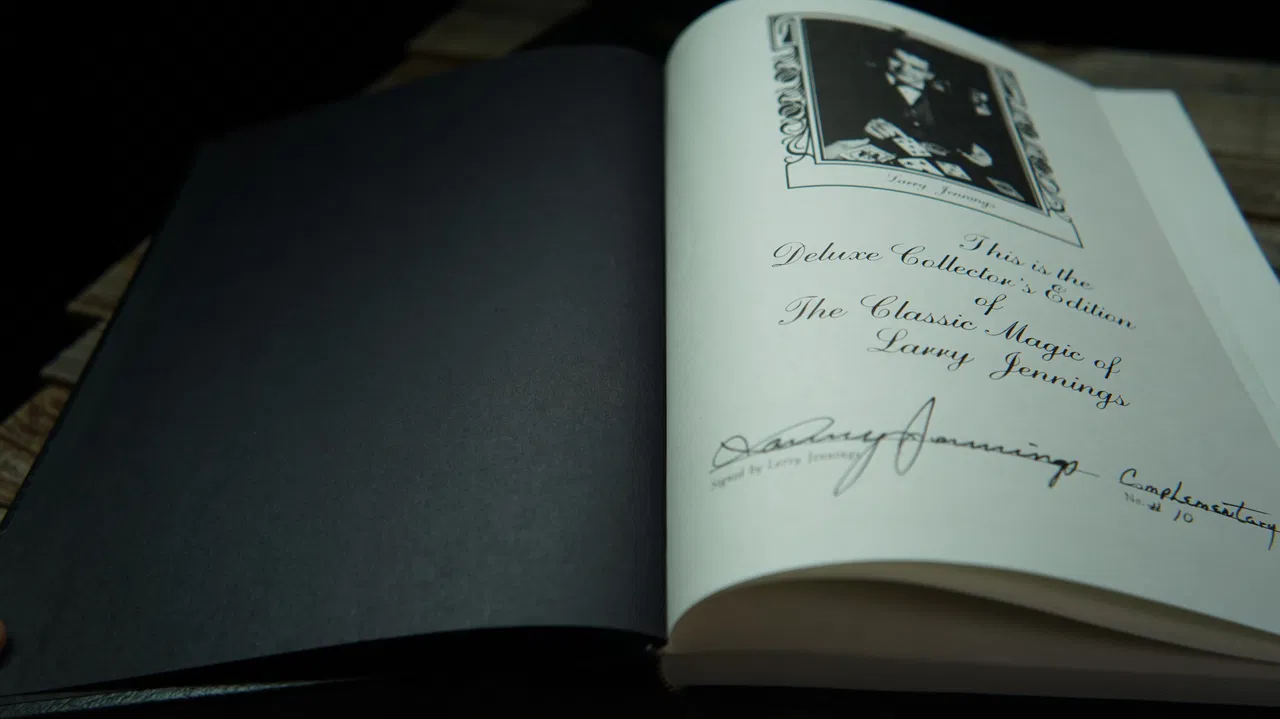 Larry Jennings
This is the
Deluxe Collector's Edition
of
The Classic Magic of
Larry Jennings
Larry Jennings
Signed by Larry Jennings
Complementary
No. # 10